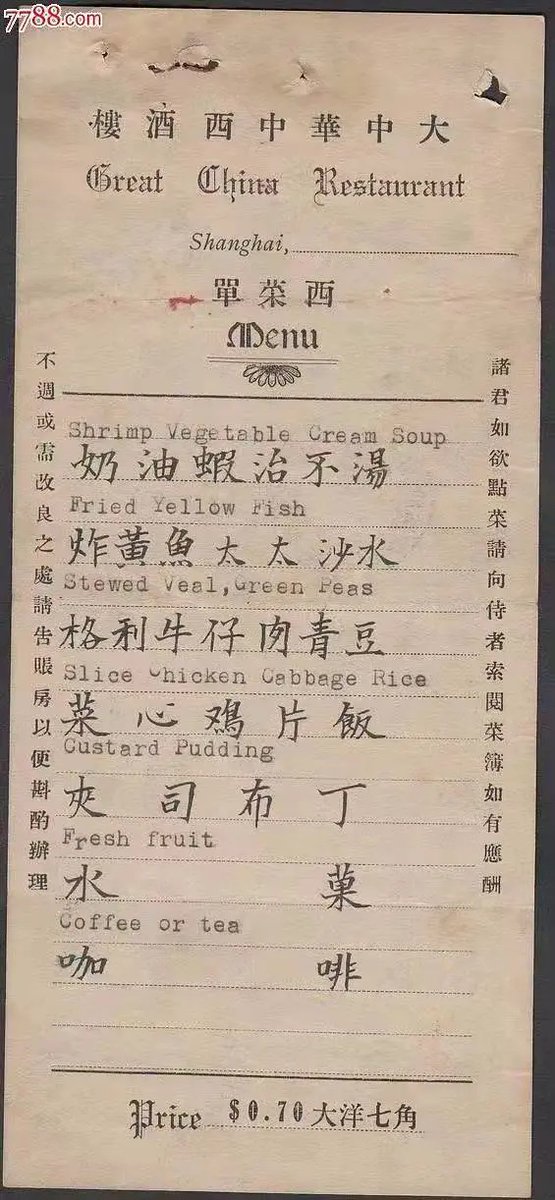 7788.com
大中華中西酒樓
Great China Restaurant
Shanghai,
西菜單
Menu
諸君如欲點菜請向侍者索閱菜簿如有應酬
不週或需改良之處請告賬房以便斟酌辦理
Shrimp Vegetable Cream Soup
奶油蝦治不湯
Fried Yellow Fish
炸黃魚太太沙水
Stewed Veal,Green Peas
格利牛仔肉青豆
Slice Chicken Cabbage Rice
菜心鴂片飯
Custard Pudding
夾司布丁
Fresh fruit
水菓
Coffee or tea
咖啡
Price $0.70 大洋七角